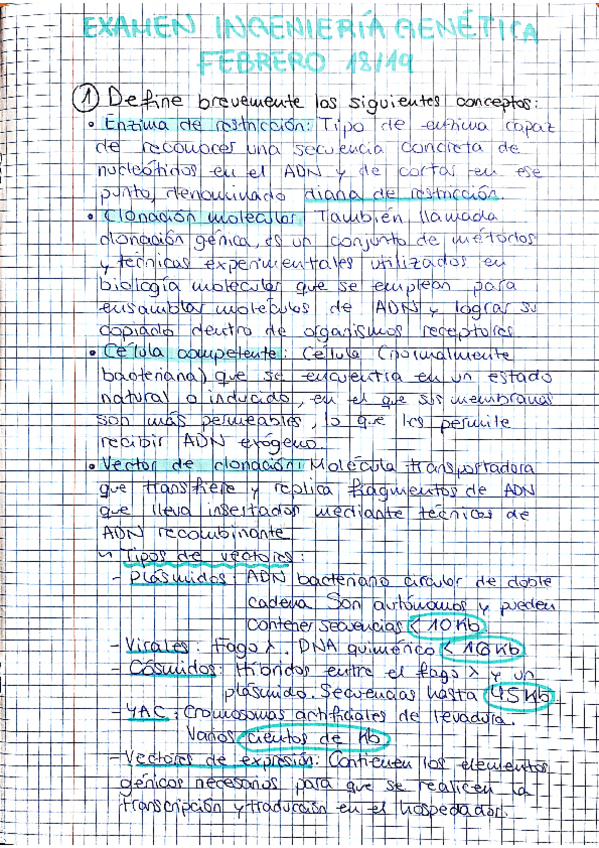 EXAMEN INGENIERÍA GENÉTICA
FEBRERO 18/19
① Define brevemente los siguientes conceptos:
• Enzima de restricción: Tipo de enzima capaz
de reconocer una secuencia concreta de
nucleótidos en el ADN y de cortar en ese
punto, denominado diana de restricción.
• Clonación molecular: También llamada
clonación génica, es un conjunto de métodos
y técnicas experimentales utilizados en
biología molecular que se emplean para
ensamblar moléculas de ADN y lograr su
copiado dentro de organismos receptores.
• Célula competente: Célula (normalmente
bacteriana) que se encuentra en un estado
natural o inducido, en el que sus membranas
son más permeables, lo que les permite
recibir ADN exógeno.
• Vector de clonación: Molécula transportadora
que transfiere y replica fragmentos de ADN
que lleva insertados mediante técnicas de
ADN recombinante
Tipos de vectores:
- Plásmidos: ADN bacteriano circular de doble
cadena. Son autónomos y pueden
contener secuencias < 10 Kb
- Virales: Fago λ. DNA quimérico < 16 Kb
- Cósmidos: Híbridos entre el fago λ y un
plásmido. Secuencias hasta 45 Kb
- YAC: Cromosomas artificiales de levadura.
Varios cientos de Kb
- Vectores de expresión: Contienen los elementos
génicos necesarios para que se realicen la
transcripción y traducción en el hospedador.